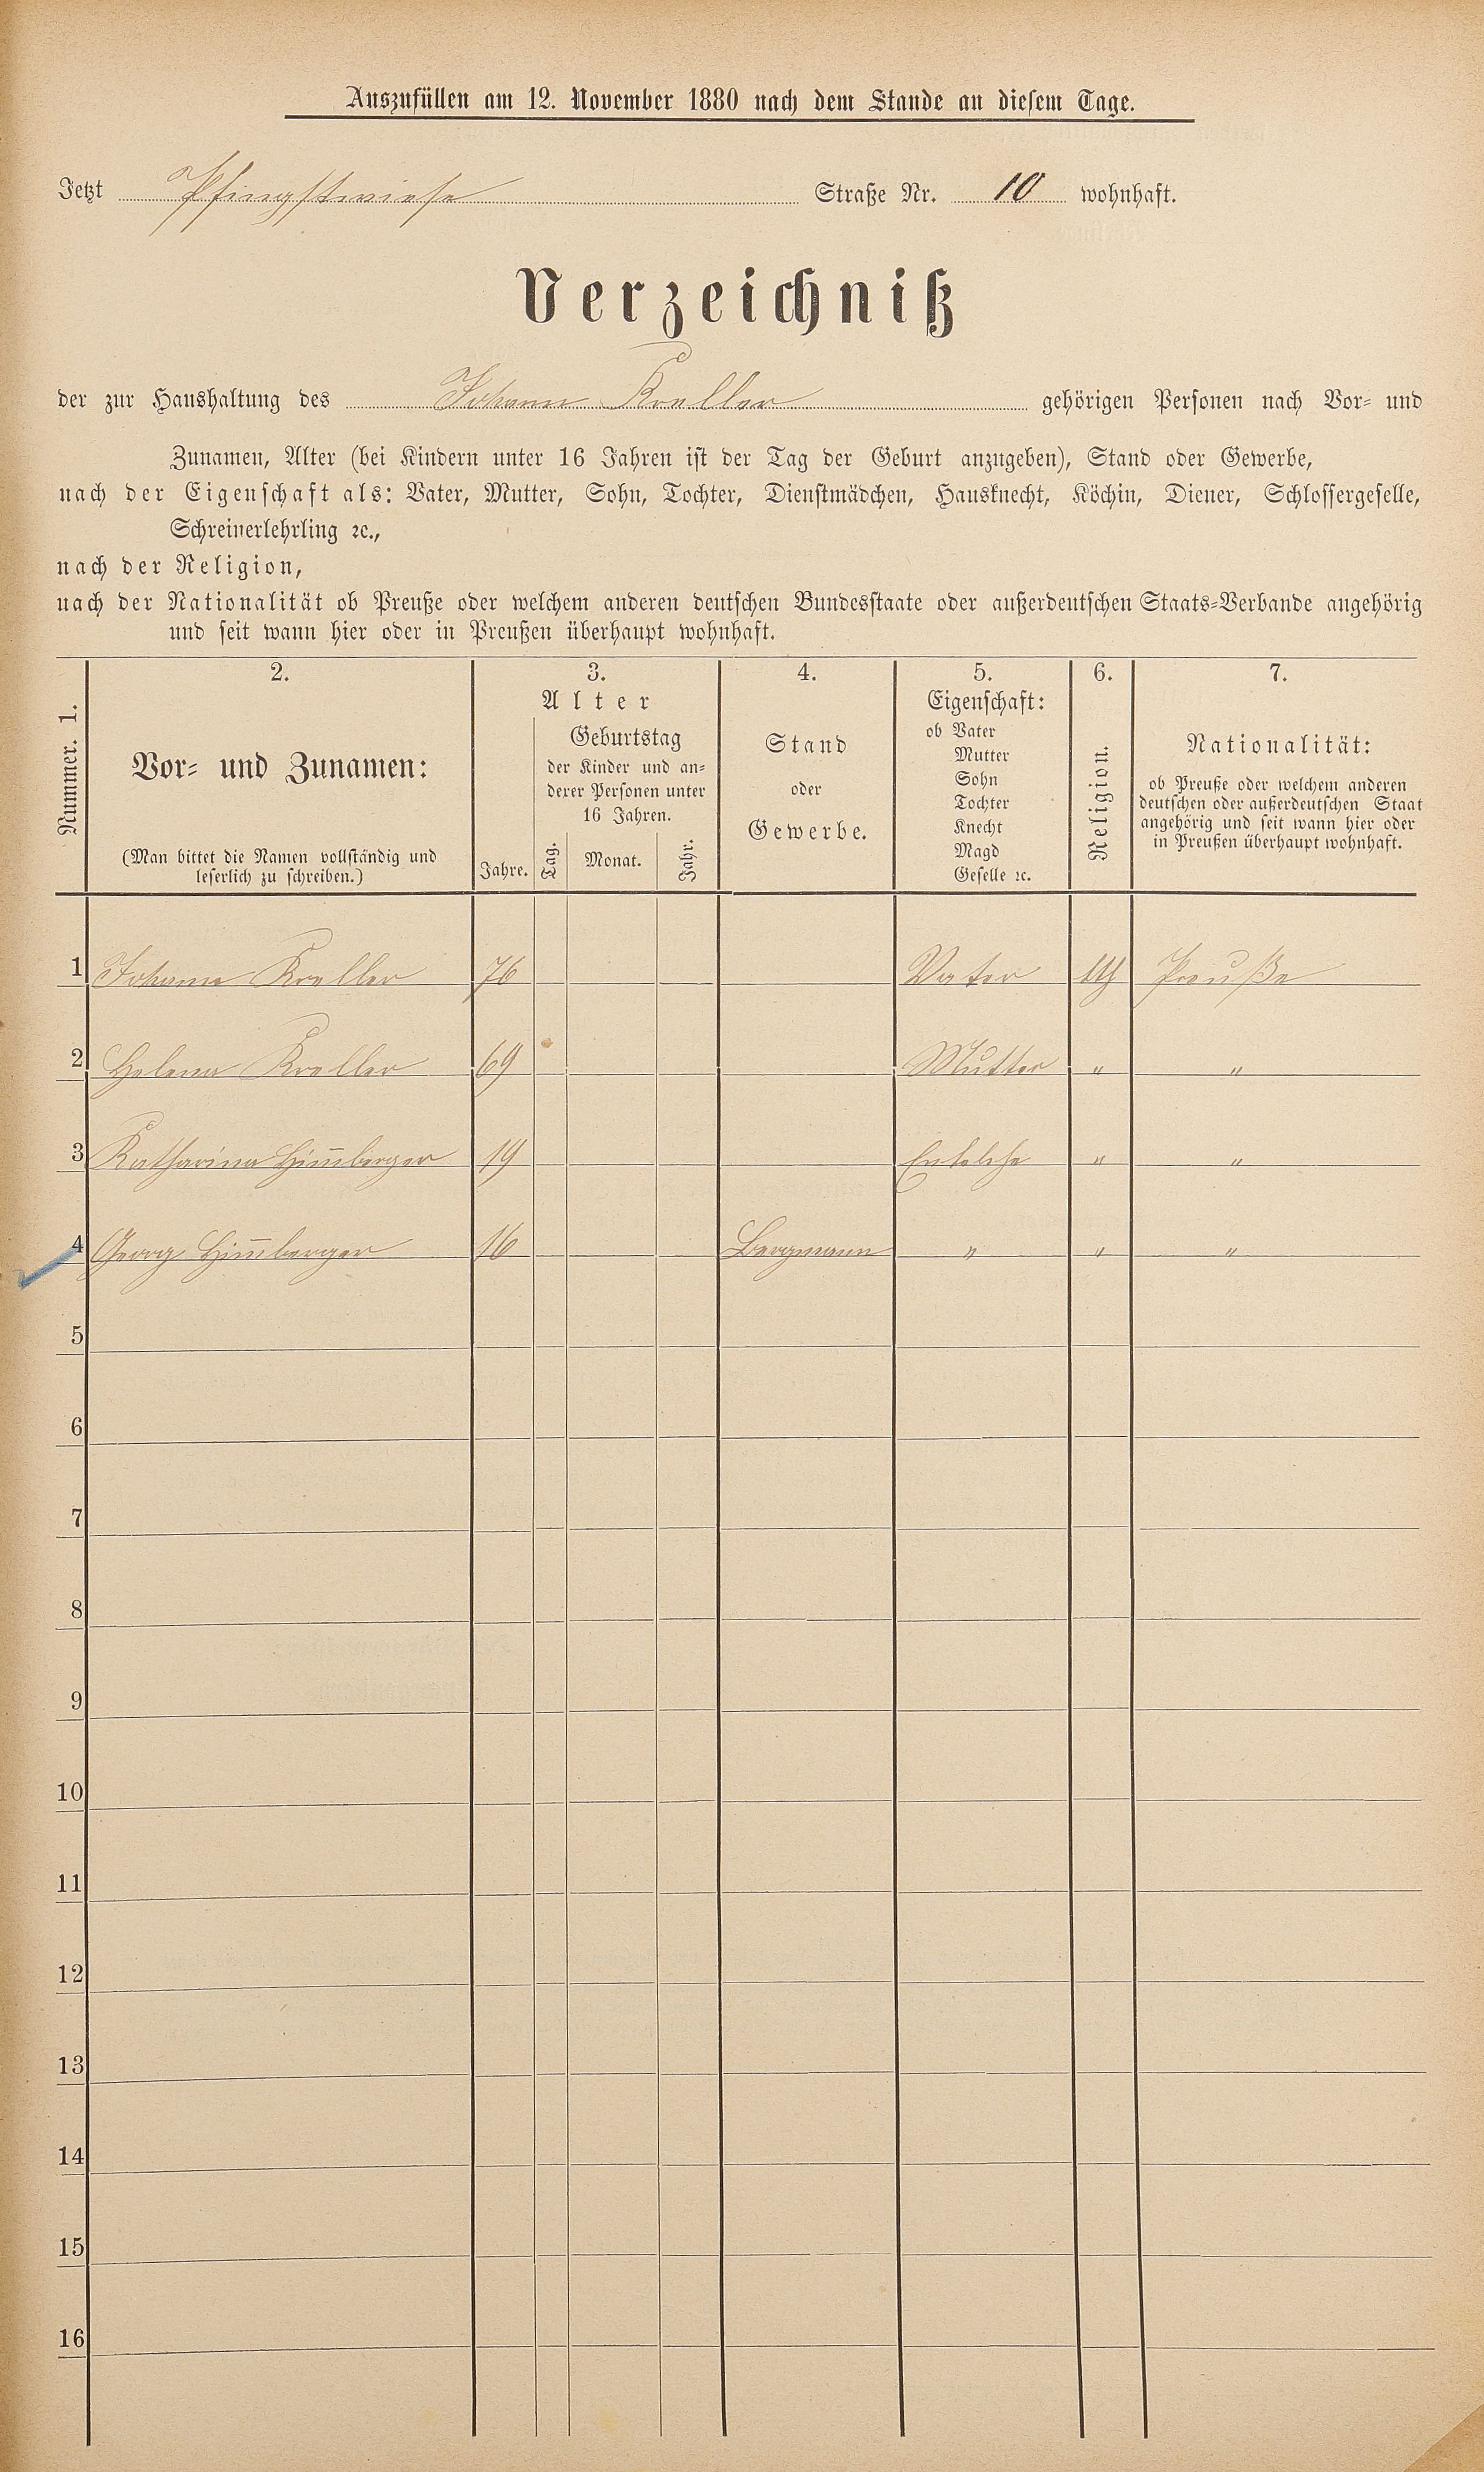 Auszufüllen am 12. November 1880 nach dem Stande an diesem Tage.
Jetzt Pfingstwiese Straße Nr. 10 wohnhaft.
Verzeichniß
der zur Haushaltung des Johann Kreller gehörigen Personen nach Vor- und
Zunamen, Alter (bei Kindern unter 16 Jahren ist der Tag der Geburt anzugeben), Stand oder Gewerbe,
nach der Eigenschaft als: Vater, Mutter, Sohn, Tochter, Dienstmädchen, Hausknecht, Köchin, Diener, Schlossergeselle,
Schreinerlehrling ꝛc.,
nach der Religion,
nach der Nationalität ob Preuße oder welchem anderen deutschen Bundesstaate oder außerdeutschen Staats-Verbande angehörig
und seit wann hier oder in Preußen überhaupt wohnhaft.
Nummer. 1.
2.
Vor- und Zunamen:
(Man bittet die Namen vollständig und
leserlich zu schreiben.)
3.
Alter
Jahre.
Geburtstag
der Kinder und an-
derer Personen unter
16 Jahren.
Tag. Monat. Jahr.
4.
Stand
oder
Gewerbe.
5.
Eigenschaft:
ob Vater
Mutter
Sohn
Tochter
Knecht
Magd
Geselle ꝛc.
6.
Religion.
7.
Nationalität:
ob Preuße oder welchem anderen
deutschen oder außerdeutschen Staat
angehörig und seit wann hier oder
in Preußen überhaupt wohnhaft.
1 Johann Kreller 76 Vater Preuße
2 Helena Kreller 69 Mutter " "
3 Katharina Him̄berger 19 " "
4 Georg Him̄berger 16 Bergmann " " "
5
6
7
8
9
10
11
12
13
14
15
16